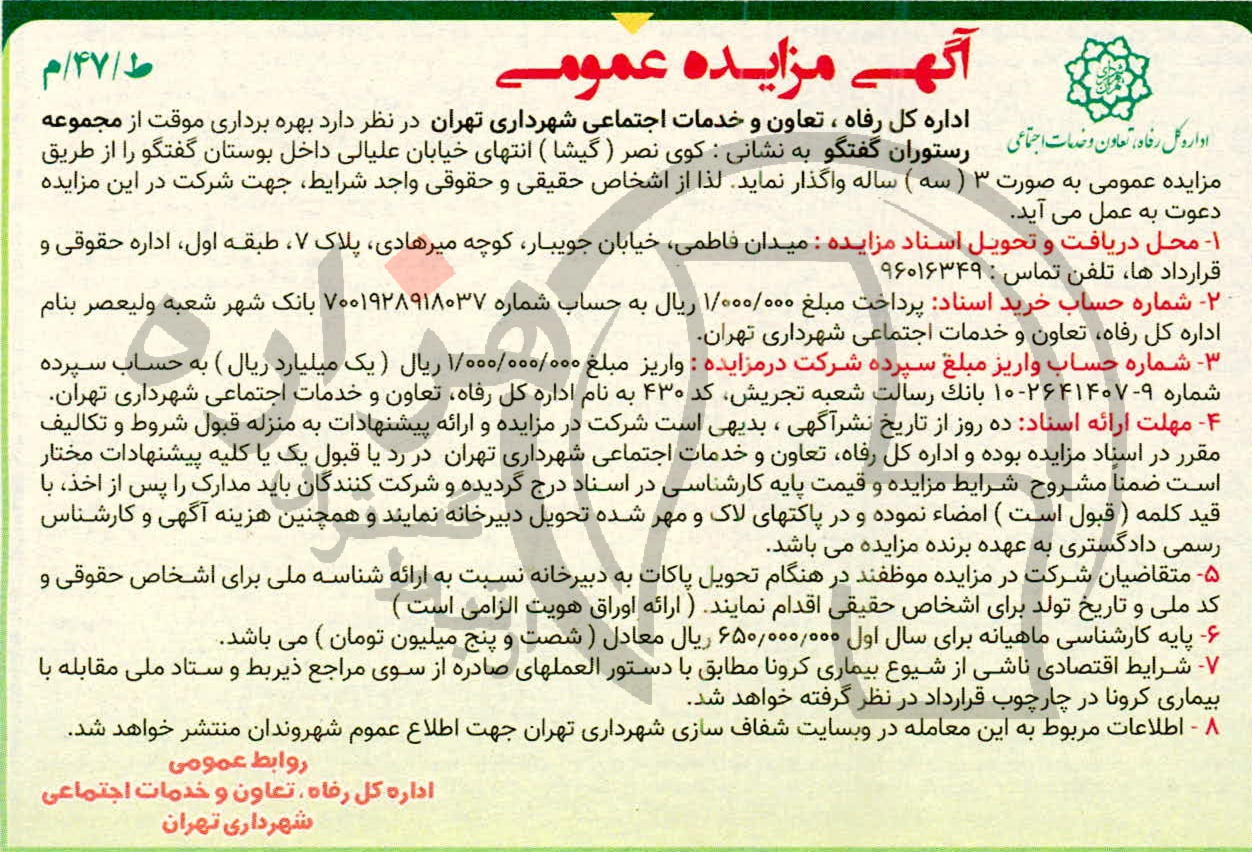 آگهی مزایده عمومی
ط/۴۷/م
اداره کل رفاه، تعاون و خدمات اجتماعی
اداره کل رفاه ، تعاون و خدمات اجتماعی شهرداری تهران در نظر دارد بهره برداری موقت از مجموعه
رستوران گفتگو به نشانی : کوی نصر ( گیشا ) انتهای خیابان علیالی داخل بوستان گفتگو را از طریق
مزایده عمومی به صورت ۳ ( سه ) ساله واگذار نماید. لذا از اشخاص حقیقی و حقوقی واجد شرایط، جهت شرکت در این مزایده
دعوت به عمل می آید.
۱- محل دریافت و تحویل اسناد مزایده : میدان فاطمی، خیابان جویبار، کوچه میرهادی، پلاک ۷، طبقه اول، اداره حقوقی و
قرارداد ها، تلفن تماس : ۹۶۰۱۶۳۴۹
۲- شماره حساب خرید اسناد: پرداخت مبلغ ۱/۰۰۰/۰۰۰ ریال به حساب شماره ۷۰۰۱۹۲۸۹۱۸۰۳۷ بانک شهر شعبه ولیعصر بنام
اداره کل رفاه، تعاون و خدمات اجتماعی شهرداری تهران.
۳- شماره حساب واریز مبلغ سپرده شرکت درمزایده : واریز مبلغ ۱/۰۰۰/۰۰۰/۰۰۰ ریال ( یک میلیارد ریال ) به حساب سپرده
شماره ۹-۲۶۴۱۴۰۷-۱۰ بانك رسالت شعبه تجریش، کد ۴۳۰ به نام اداره کل رفاه، تعاون و خدمات اجتماعی شهرداری تهران.
۴- مهلت ارائه اسناد: ده روز از تاریخ نشرآگهی ، بدیهی است شرکت در مزایده و ارائه پیشنهادات به منزله قبول شروط و تکالیف
مقرر در اسناد مزایده بوده و اداره کل رفاه، تعاون و خدمات اجتماعی شهرداری تهران در رد یا قبول یک یا کلیه پیشنهادات مختار
است ضمناً مشروح شرایط مزایده و قیمت پایه کارشناسی در اسناد درج گردیده و شرکت کنندگان باید مدارک را پس از اخذ، با
قید کلمه ( قبول است ) امضاء نموده و در پاکتهای لاک و مهر شده تحویل دبیرخانه نمایند و همچنین هزینه آگهی و کارشناس
رسمی دادگستری به عهده برنده مزایده می باشد.
۵- متقاضیان شرکت در مزایده موظفند در هنگام تحویل پاکات به دبیرخانه نسبت به ارائه شناسه ملی برای اشخاص حقوقی و
کد ملی و تاریخ تولد برای اشخاص حقیقی اقدام نمایند. ( ارائه اوراق هویت الزامی است )
۶- پایه کارشناسی ماهیانه برای سال اول ۶۵۰/۰۰۰/۰۰۰ ریال معادل ( شصت و پنج میلیون تومان ) می باشد.
۷- شرایط اقتصادی ناشی از شیوع بیماری کرونا مطابق با دستور العملهای صادره از سوی مراجع ذیربط و ستاد ملی مقابله با
بیماری کرونا در چارچوب قرارداد در نظر گرفته خواهد شد.
۸ - اطلاعات مربوط به این معامله در وبسایت شفاف سازی شهرداری تهران جهت اطلاع عموم شهروندان منتشر خواهد شد.
روابط عمومی
اداره کل رفاه، تعاون و خدمات اجتماعی
شهرداری تهران
هزاره